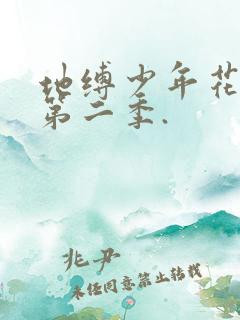 地缚少年花
第二季.
兆尹
未经同意禁止转载